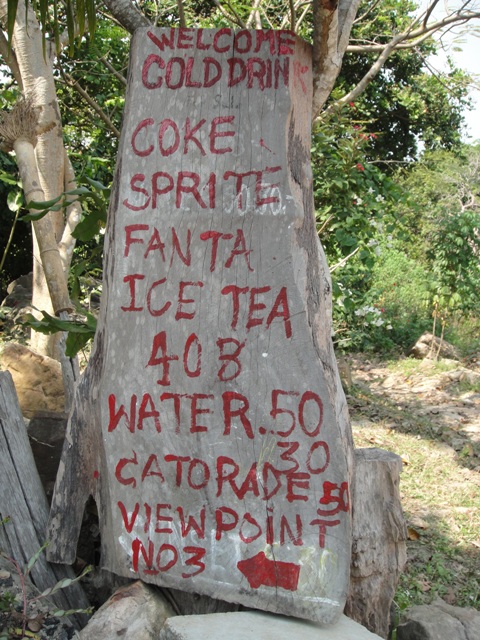 WELCOME
COLD DRINK
COKE
SPRITE
FANTA
ICE TEA
40B
WATER.50
30
GATORADE 50
VIEWPOINT
NO3